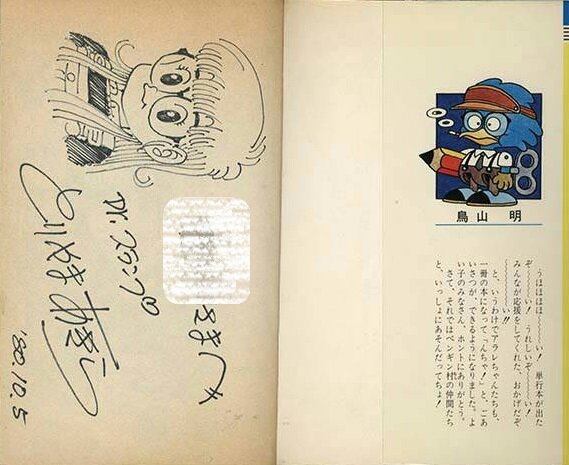 Dr.スランプの
とりやまあきら
'80.10.5
鳥山 明
うほほほほ〜〜〜い！ 単行本が出た
ぞ〜〜〜〜い！ うれしいぞ〜〜〜〜い！
みんなが応援をしてくれた、おかげだぞ
〜〜〜〜い!!
と、いうわけでアラレちゃんたちも、
一冊の本になって「んちゃ！」と、ごあ
いさつが、できるようになりました。よ
い子のみなさん、ホントにありがとう。
さて、それではペンギン村の仲間たち
と、いっしょにあそんだってちょ！